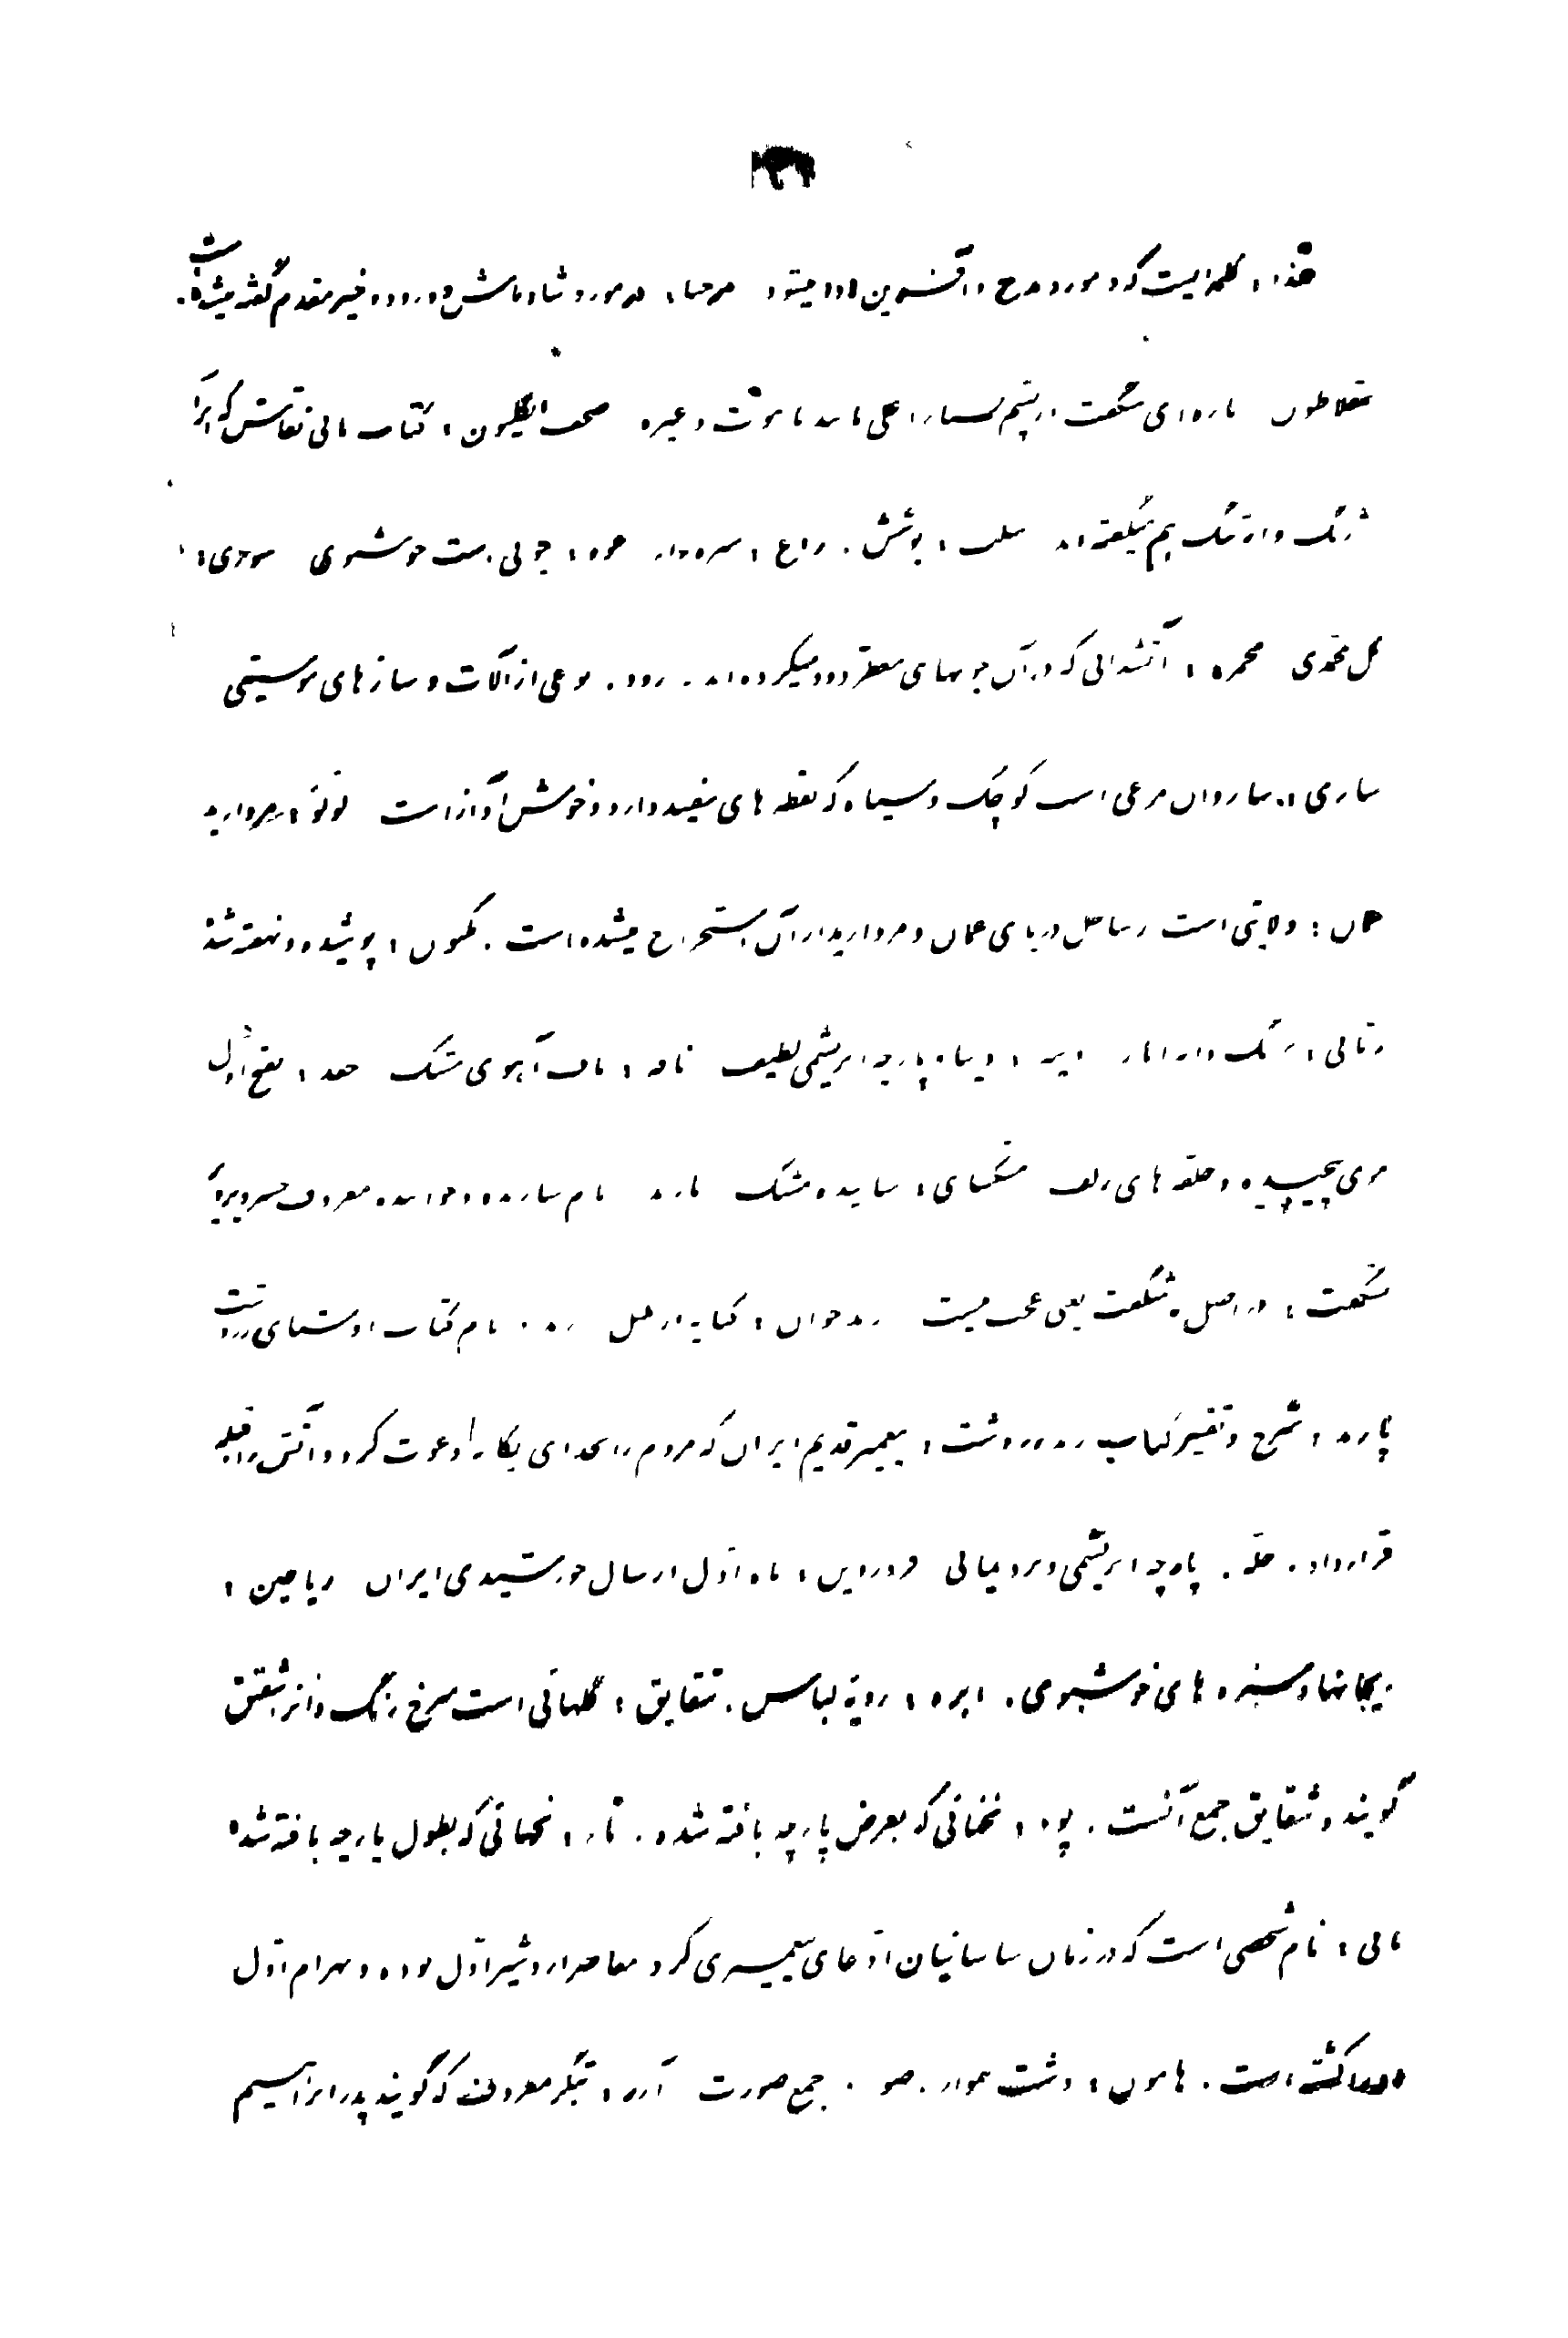 حبّذا : کلمه‌ایست که در مورد مدح و آفرین ادا میشود مرحبا : در مورد شادباش و درود و خیر مقدم گفته میشده است.
سقلاطون پارچه‌ای شگفت ابریشم بسیار اعلی مانند یاقوت و غیره صحف انگلیون : کتاب مانی نقاش که آنرا
ارژنگ و ارتنگ هم میگفته‌اند سلب : پوشش . راغ : سبزه‌زار عود : چوبی است خوشبوی سوری :
گل محمدی مجمره : آتشدانی که در آن چوبهای معطر دود میکرده‌اند . رود . نوعی از آلات و سازهای موسیقی
ساری : سار و آن مرغی است کوچک و سیاه که نقطه های سفید دارد و خوش آواز است لؤلؤ : مروارید
عمان : ولایتی است در ساحل دریای عمان و مروارید از آن استخراج میشده است . مکنون : پوشیده و نهفته شده
رمانی : رنگ دانه انار دیبه : دیبا ، پارچه ابریشمی لطیف نافه : ناف آهوی مشک جعد : بفتح اول
موی پیچیده و حلقه های زلف مشکسای : ساینده مشک باربد نام سازنده و خواننده معروف خسرو پرویز
شگفت : در اصل شگفت یعنی عجب نیست زندخوان : کنایه از بلبل زند . نام کتاب اوستای زردشت
پازند : شرح و تفسیر کتاب زند زردشت : پیغمبر قدیم ایران که مردم را بخدای یگانه دعوت کرد و آتش را قبله
قرار داد . حلّه . پارچه ابریشمی و برد یمانی فروردین : ماه اول از سال خورشیدی ایران ریاحین :
ریحانها و سبزه های خوشبوی . ابره : رویهٔ لباس . شقایق : گلهائی است سرخ رنگ و آنرا شقیق
گویند و شقایق جمع آنست . پود : نخهائی که بعرض پارچه بافته شده . تار : نخهائی که بطول پارچه بافته شده
مانی : نام شخصی است که در زمان ساسانیان ادّعای پیغمبری کرد معاصر اردشیر اول بوده و بهرام اول
او را کشته است . هامون : دشت هموار . صور . جمع صورت آزر : بتگر معروف که گویند پدر ابراهیم